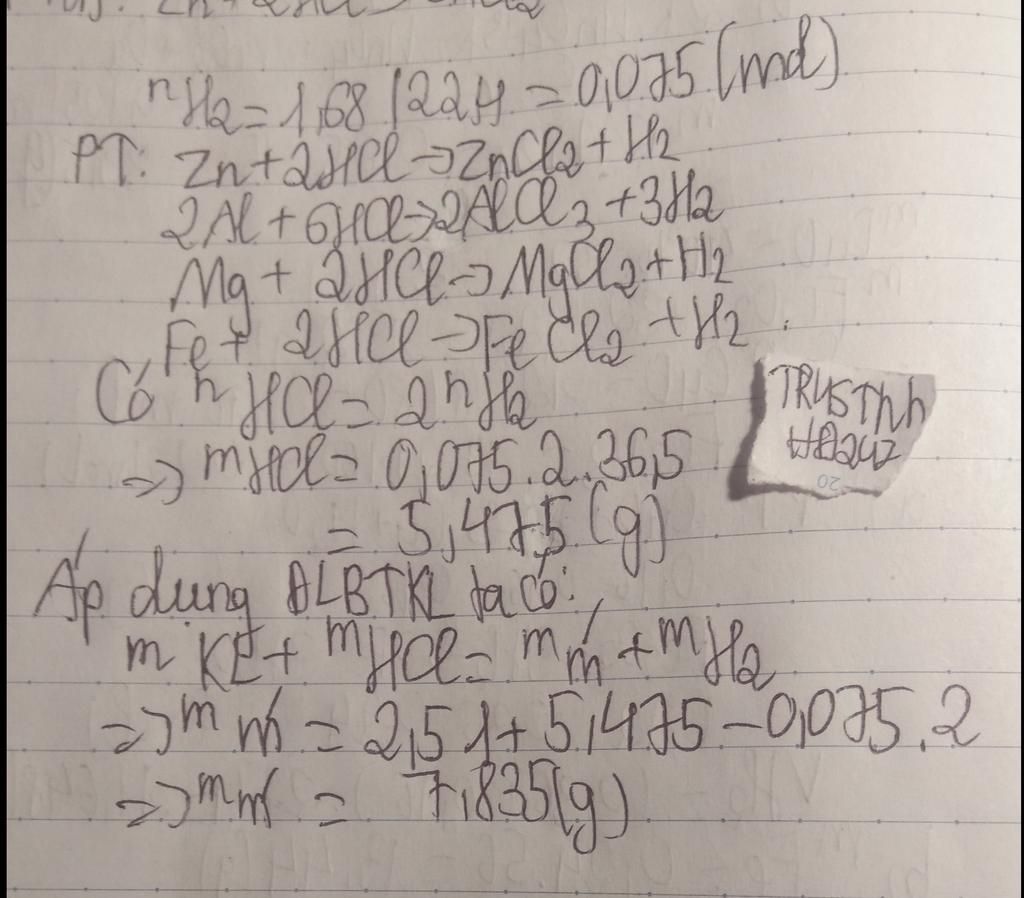 Zn + 2HCl
nH2 = 1,68 / 22,4 = 0,075 (mol)
PT: Zn + 2HCl → ZnCl2 + H2
2Al + 6HCl → 2AlCl3 + 3H2
Mg + 2HCl → MgCl2 + H2
Fe + 2HCl → FeCl2 + H2
Có nHCl = 2nH2
TRUSThh
=> mHCl = 0,075.2.36,5
= 5,475 (g)
Áp dụng ĐLBTKL ta có:
m KL + mHCl = m m' + mH2
=> m m' = 2,51 + 5,475 - 0,075.2
=> m m' = 7,835 (g)